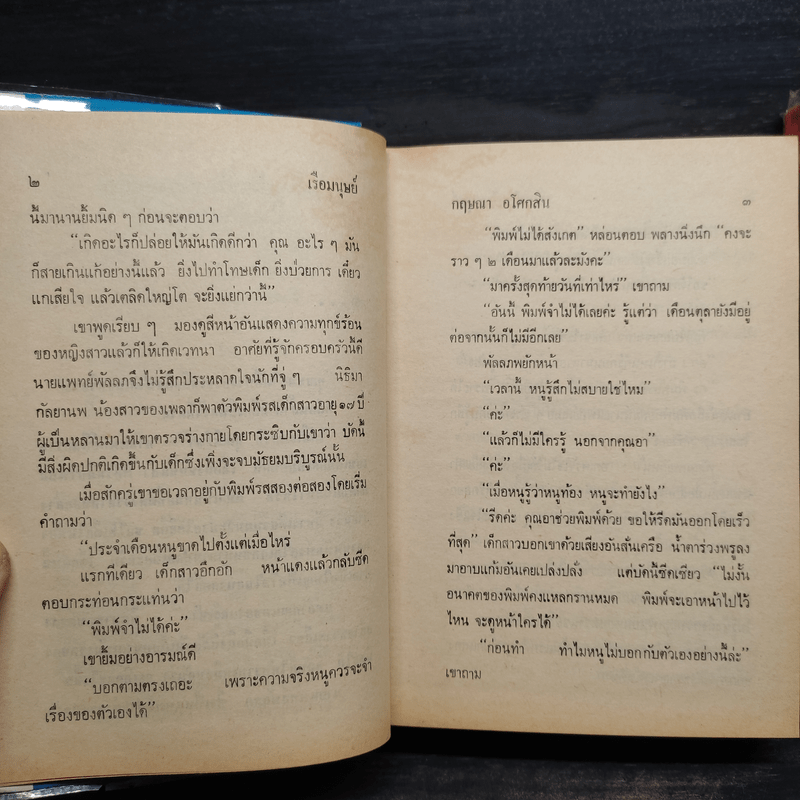 ๒ เรือมนุษย์
นี้มานานยิ้มนิด ๆ ก่อนจะตอบว่า
“เกิดอะไรก็ปล่อยให้มันเกิดดีกว่า คุณ อะไร ๆ มัน
ก็สายเกินแก้อย่างนี้แล้ว ยิ่งไปทำโทษเด็ก ยิ่งป่วยการ เดี๋ยว
แกเสียใจ แล้วเตลิดใหญ่โต จะยิ่งแย่กว่านี้”
เขาพูดเรียบ ๆ มองดูสีหน้าอันแสดงความทุกข์ร้อน
ของหญิงสาวแล้วก็ให้เกิดเวทนา อาศัยที่รู้จักครอบครัวนี้ดี
นายแพทย์พัลลภจึงไม่รู้สึกประหลาดใจนักที่จู่ ๆ นิธิมา
กัลยานพ น้องสาวของเพลาก็พาตัวพิมพ์รสเด็กสาวอายุ๑๗ปี
ผู้เป็นหลานมาให้เขาตรวจร่างกายโดยกระซิบกับเขาว่า บัดนี้
มีสิ่งผิดปกติเกิดขึ้นกับเด็กซึ่งเพิ่งจะจบมัธยมบริบูรณ์นั้น
เมื่อสักครู่เขาขอเวลาอยู่กับพิมพ์รสสองต่อสองโดยเริ่ม
คำถามว่า
“ประจำเดือนหนูขาดไปตั้งแต่เมื่อไหร่
แรกทีเดียว เด็กสาวอึกอัก หน้าแดงแล้วกลับซีด
ตอบกระท่อนกระแท่นว่า
“พิมพ์จำไม่ได้ค่ะ”
เขายิ้มอย่างอารมณ์ดี
“บอกตามตรงเถอะ เพราะความจริงหนูควรจะจำ
เรื่องของตัวเองได้”
กฤษณา อโศกสิน ๓
“พิมพ์ไม่ได้สังเกต” หล่อนตอบ พลางนิ่งนึก “คงจะ
ราว ๆ ๒ เดือนมาแล้วละมังคะ”
“มาครั้งสุดท้ายวันที่เท่าไหร่” เขาถาม
“อันนี้ พิมพ์จำไม่ได้เลยค่ะ รู้แต่ว่า เดือนตุลายังมีอยู่
ต่อจากนั้นก็ไม่มีอีกเลย”
พัลลภพยักหน้า
“เวลานี้ หนูรู้สึกไม่สบายใช่ไหม”
“ค่ะ”
“แล้วก็ไม่มีใครรู้ นอกจากคุณอา”
“ค่ะ”
“เมื่อหนูรู้ว่าหนูท้อง หนูจะทำยังไง”
“รีดค่ะ คุณอาช่วยพิมพ์ด้วย ขอให้รีดมันออกโดยเร็ว
ที่สุด” เด็กสาวบอกเขาด้วยเสียงอันสั่นเครือ น้ำตาร่วงพรูลง
มาอาบแก้มอันเคยเปล่งปลั่ง แต่บัดนี้ซีดเซียว “ไม่งั้น
อนาคตของพิมพ์คงแหลกรานหมด พิมพ์จะเอาหน้าไปไว้
ไหน จะดูหน้าใครได้”
“ก่อนทำ ทำไมหนูไม่บอกกับตัวเองอย่างนี้ล่ะ”
เขาถาม